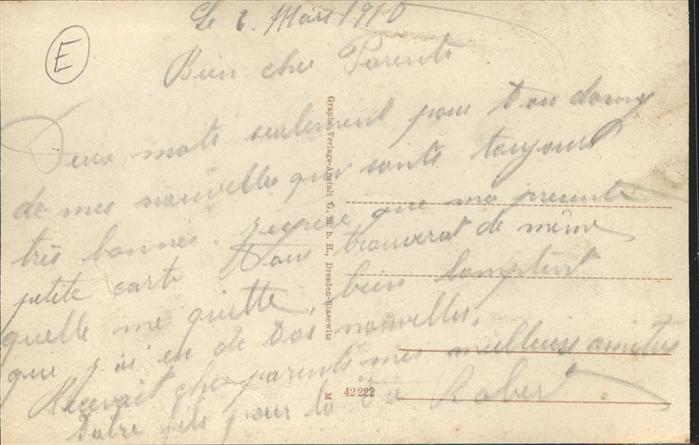 E
Le 6 Mars 1910
Bien cher Parents
Deux mots seulement pour Vou donny
de mes nouvelles qui sonts toujours
très bonnes. jespere que ma presente
petite carte Vous trouverat de même
quelle me quitte, bien Comptent
que j'ai eu de Vos nouvelles.
Recevait cher parents mes meilleurs amities
Votre fils pour la Robert
Graph. Verlags-Anstalt G. m. b. H., Dresden-Blasewitz
M 42222